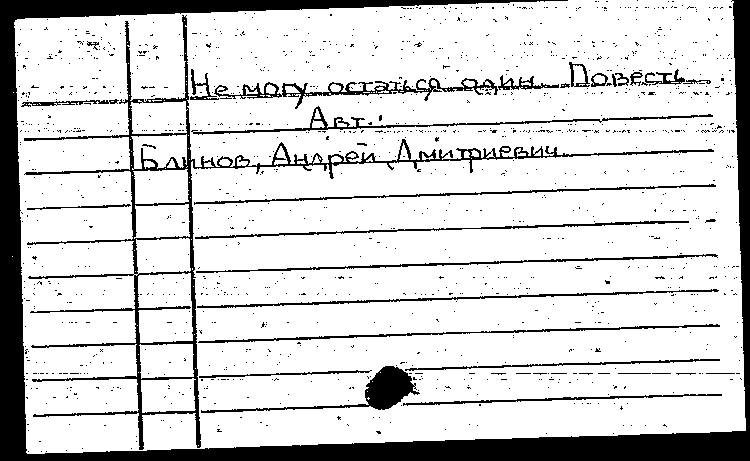 Не могу остаться один. Повесть
Авт.:
Блинов, Андрей Дмитриевич.